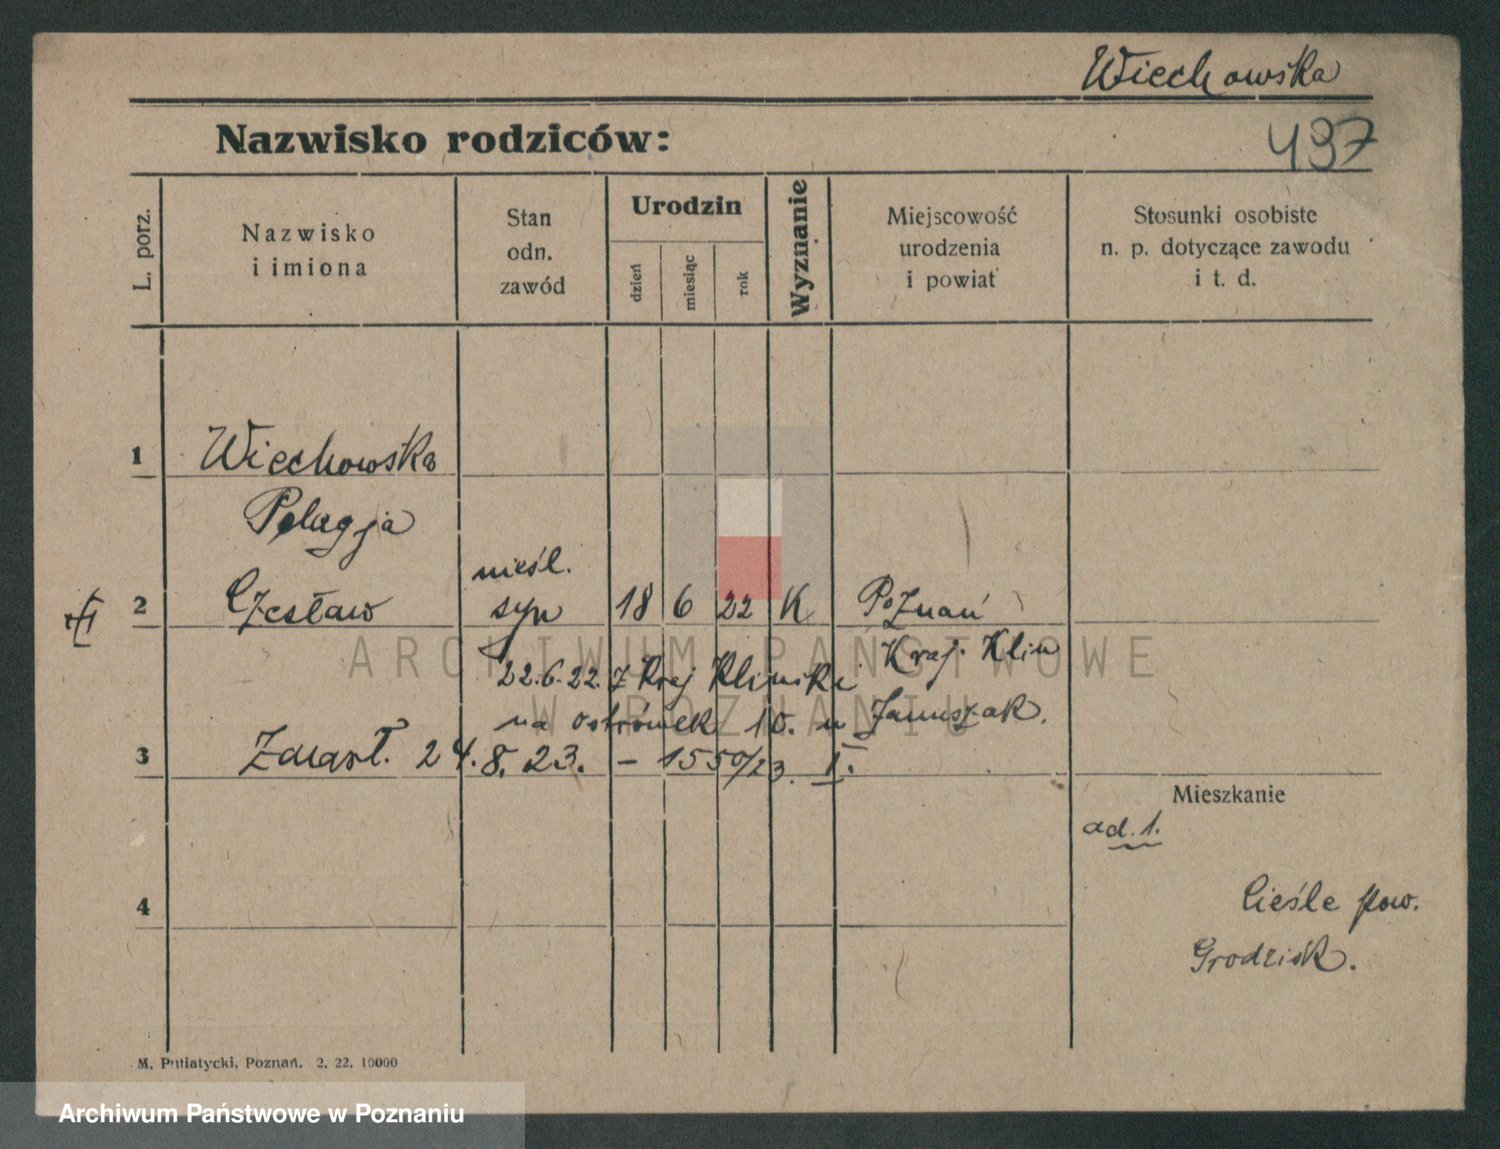 Wiechowska
Nazwisko rodziców:
437
L. porz.
Nazwisko
i imiona
Stan
odn.
zawód
Urodzin
dzień
miesiąc
rok
Wyznanie
Miejscowość
urodzenia
i powiat
Stosunki osobiste
n. p. dotyczące zawodu
i t. d.
1 Wiechowska
Pelagja
nieśl.
2 Czesław syn 18 6 22 K Poznań
Kraj. Klin
22.6.22. z Kraj Kliniki
na ostrówek 10. u Januszak.
3 Zmarł. 24.8.23. – 1550/23. I.
Mieszkanie
ad. 1.
4
Cieśle pow.
Grodzisk.
M. Putiatycki, Poznań. 2. 22. 10000
ARCHIWUM PAŃSTWOWE
W POZNANIU
Archiwum Państwowe w Poznaniu